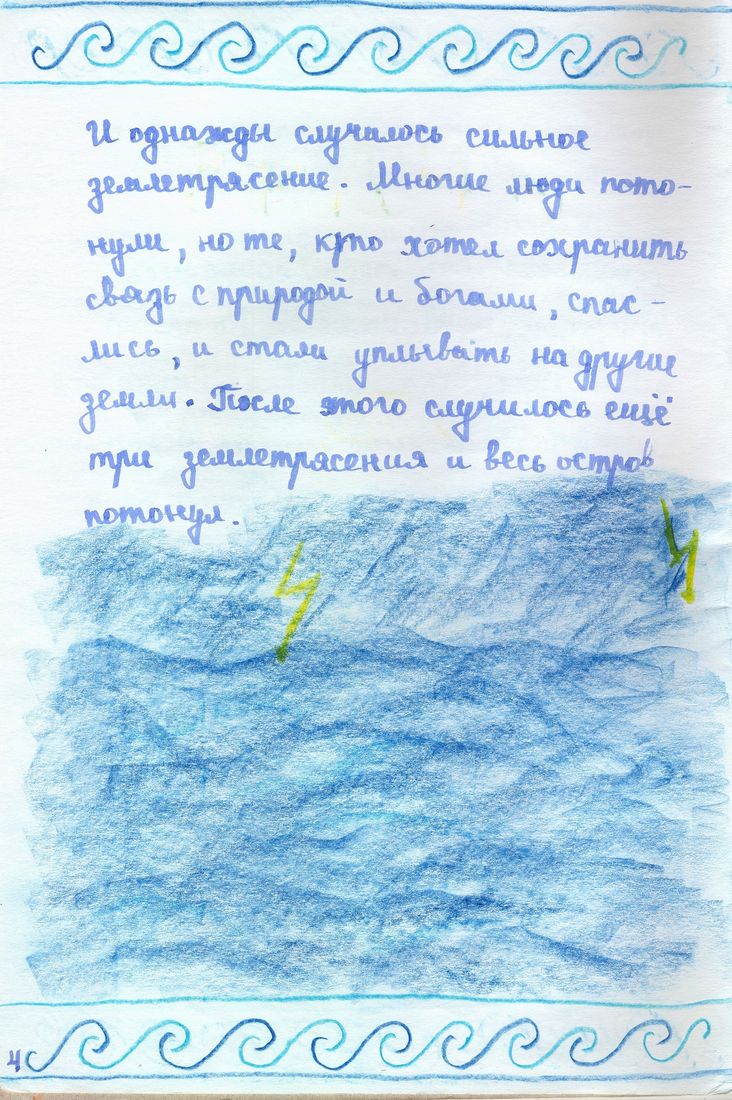 И однажды случилось сильное
землетрясение. Многие люди пото-
нули, но те, кто хотел сохранить
связь с природой и богами, спас-
лись, и стали уплывать на другие
земли. После этого случилось ещё
три землетрясения и весь остров
потонул.
4